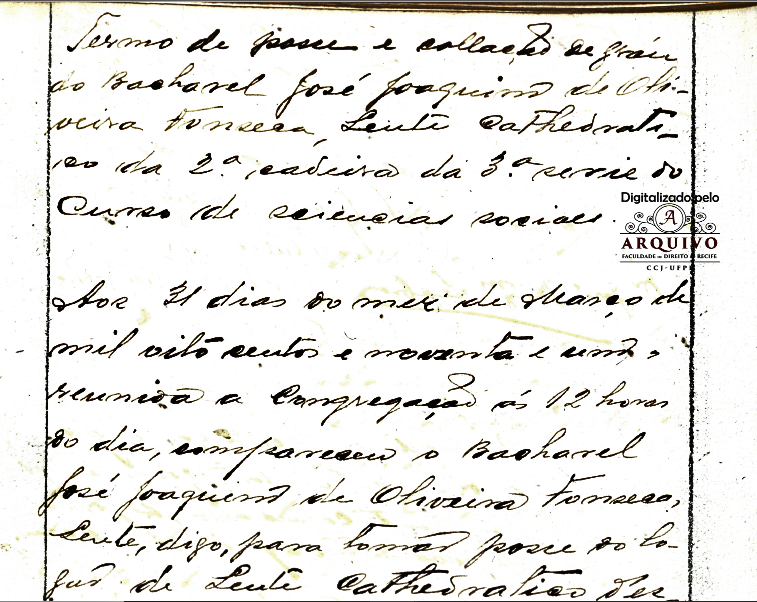 Termo de posse e collação de gráu
do Bacharel José Joaquim de Oli-
veira Fonseca, Lente Cathedrati-
co da 2.ª cadeira da 3.ª serie do
Curso de sciencias sociaes.
Digitalizado pelo
A
ARQUIVO
FACULDADE DE DIREITO DO RECIFE
CCJ-UFPE
Aos 31 dias do mez de Março de
mil oito centos e noventa e um,
reunida a Congregação ás 12 horas
do dia, compareceu o Bacharel
José Joaquim de Oliveira Fonseca,
Lente, digo, para tomar posse do lo-
gar de Lente Cathedratico d'es-